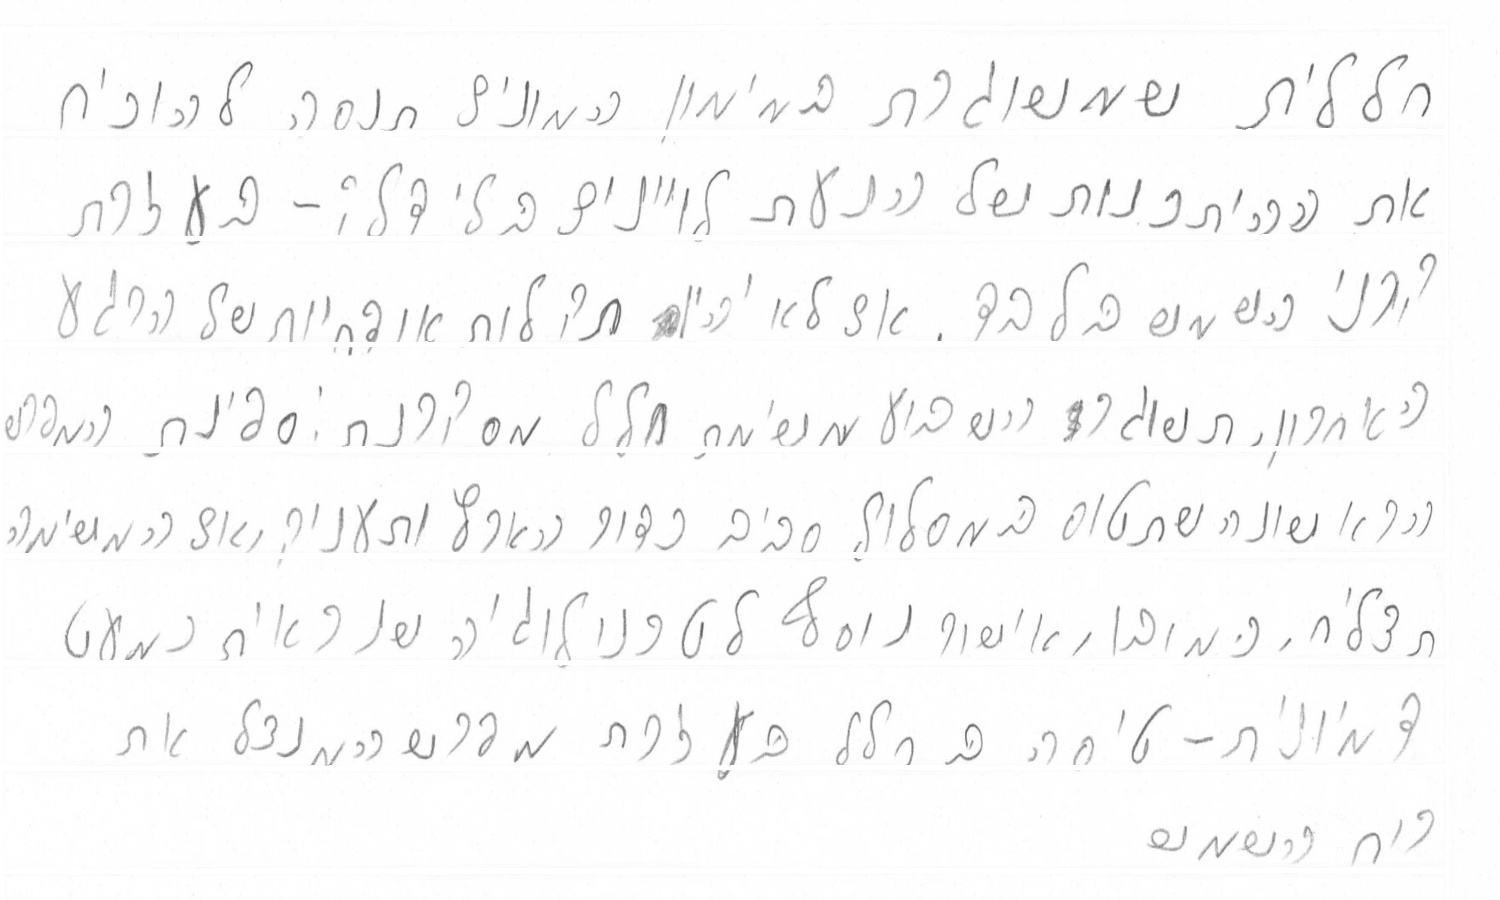 חללית שמשוגרת במימון המונים תנסה להוכיח
את ההיתכנות של הנעת לוויינים בלי דלק - בעזרת
קרני השמש בלבד. אם לא יהיו תקלות או דחיות של הרגע
האחרון, תשוגר השבוע משימת חלל מסקרנת: ספינת המפרש
הראשונה שתטוס במסלול סביב כדור הארץ ותעניק, אם המשימה
תצליח, כמובן, אישור נוסף לטכנולוגיה שנראית כמעט
דמיונית - טיסה בחלל בעזרת מפרש המנצל את
כוח השמש